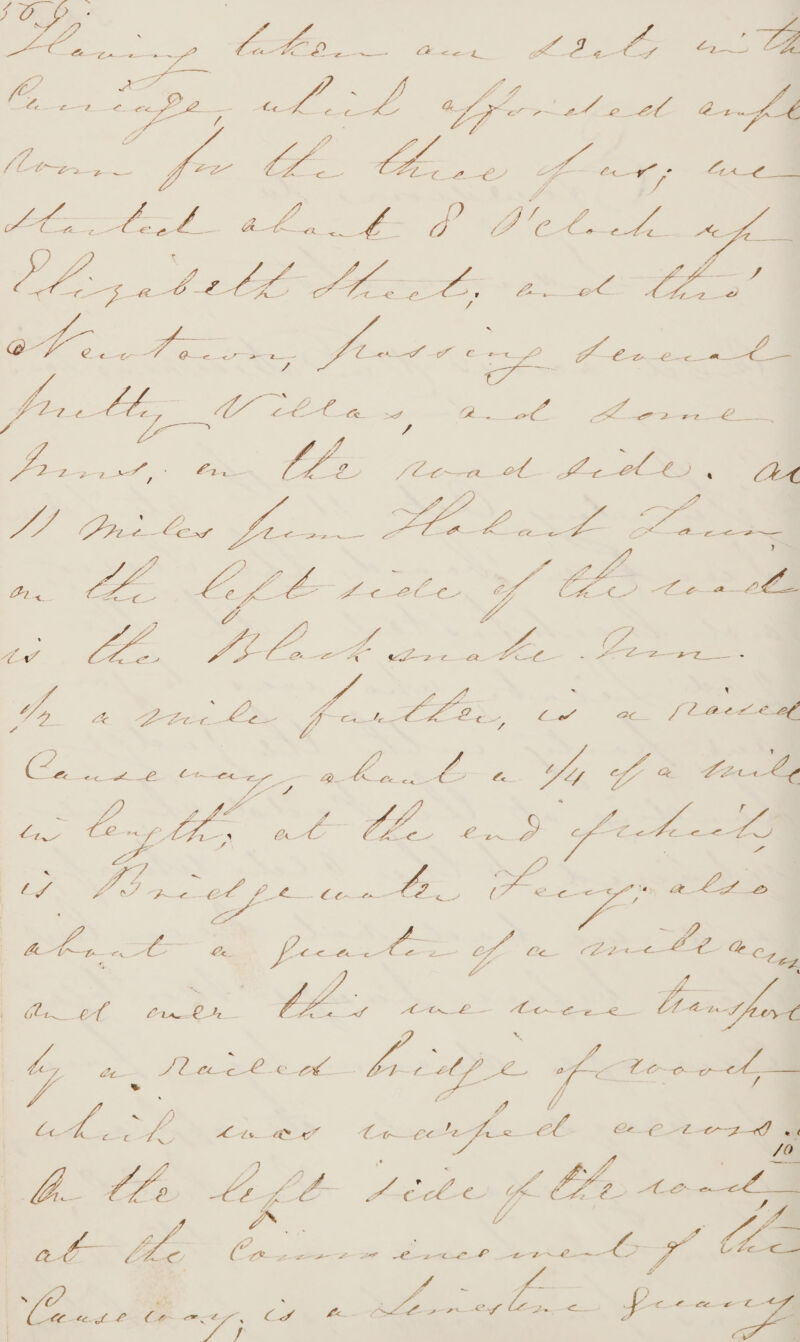 Having taken our seats in th
Carriage, which afforded ampl
room for the three of us; we
started about 8 O'Clock up
Elizabeth Street; and thro'
Newtown, passing several
pretty Villas, and some
Inns, on the road side. at
11 Miles from Hobart Town,
on the left side of the road
is the Black snake Inn.
1/2 a mile further, is a raised
Causeway, about a 1/4 of a mile
in length; at the end of which,
is Bridgewater Ferry; also
about a quarter of a mile acros
and over this we were transport
by a Railed bridge of wood,
which was warped across.
10
On the left side of the road,
at the Commencement of the
Causeway, is a Limestone Quarry